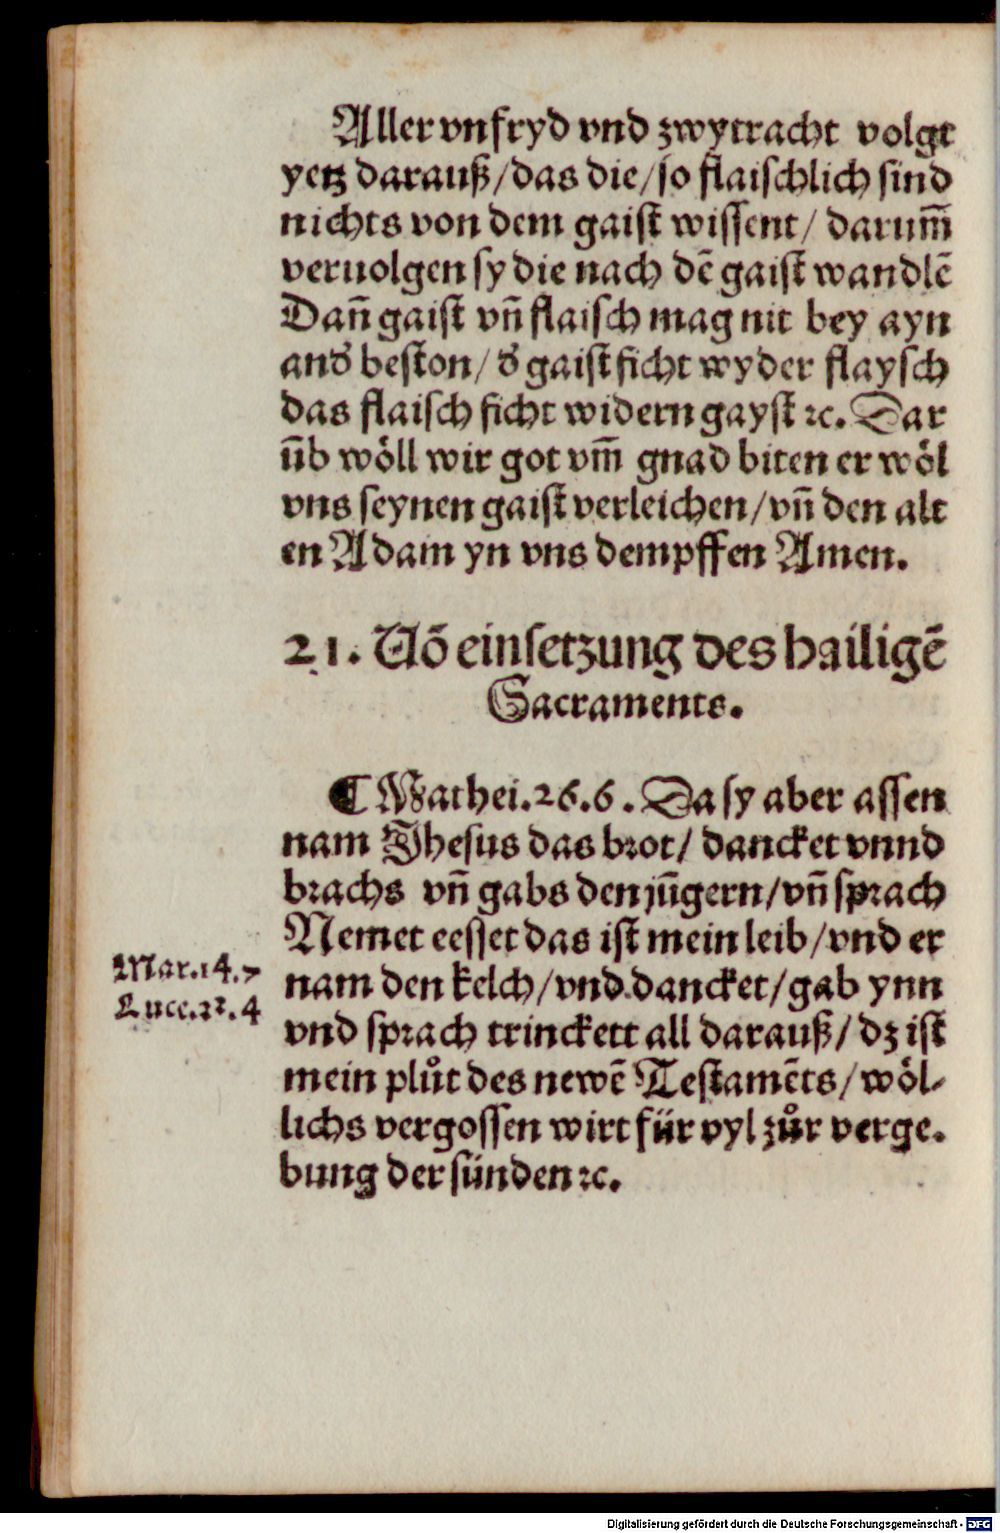 Aller vnfryd vnd zwytracht volgt
yetz darauß/das die/so flaischlich sind
nichts von dem gaist wissent/ darum̄
veruolgen sy die nach dē gaist wandlē
Dañ gaist vñ flaisch mag nit bey ayn
and͛ beston/ d͛ gaist ficht wyder flaysch
das flaisch ficht widern gayst ꝛc. Dar
ūb wöll wir got vm̄ gnad biten er wöl
vns seynen gaist verleichen/vñ den alt
en Adam yn vns dempffen Amen.
21. Uō einsetzung des hailigē
Sacraments.
¶ Mathei.26.6. Da sy aber assen
nam Jhesus das brot/ dancket vnnd
brachs vñ gabs den jūgern/vñ sprach
Nemet eesset das ist mein leib/vnd er
Mar.14.7
nam den kelch/vnd dancket/gab ynn
Luce.22.4
vnd sprach trinckett all darauß/ dz ist
mein plůt des newē Testamēts/wöl-
lichs vergossen wirt für vyl zůr verge.
bung der sünden ꝛc.
Digitalisierung gefördert durch die Deutsche Forschungsgemeinschaft - DFG